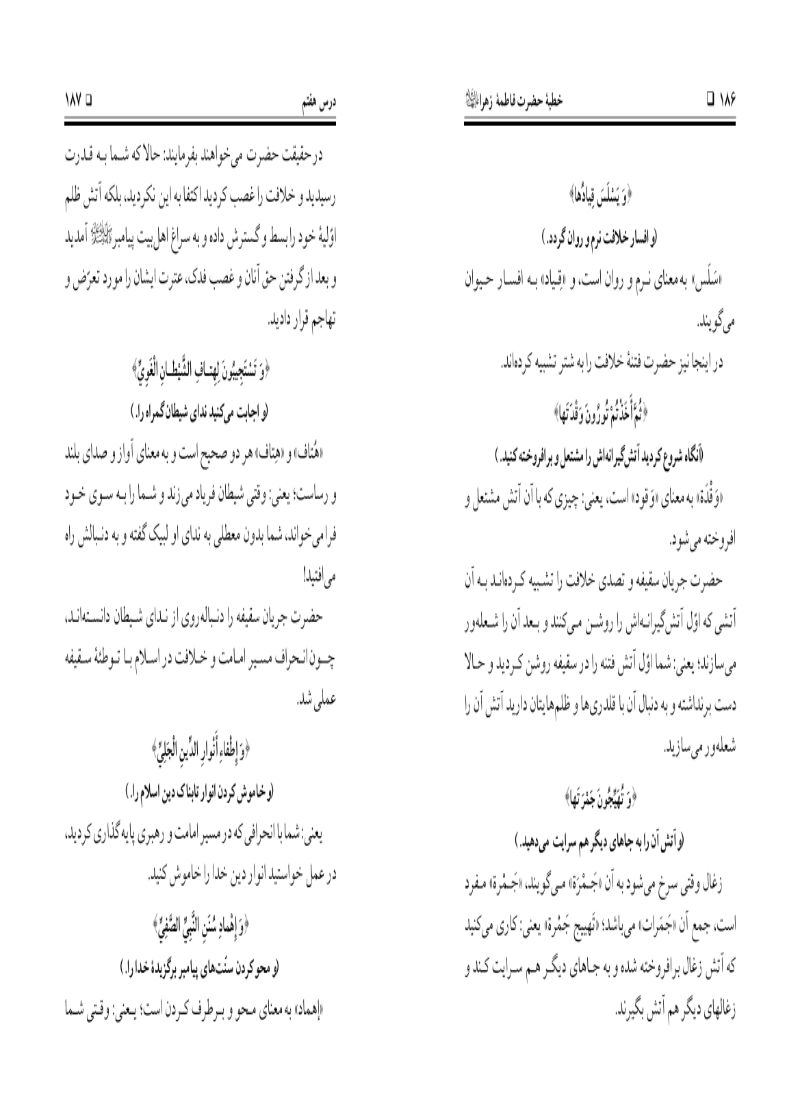 ۱۸۶ ❑ خطبهٔ حضرت فاطمهٔ زهرا
﴿وَ یَسْلَسَ قِیادُها﴾
(و افسار خلافت نرم و روان گردد.)
«سَلَس» به معنای نـرم و روان است، و «قِـیاد» بـه افسـار حـیوان
می‌گویند.
در اینجا نیز حضرت فتنهٔ خلافت را به شتر تشبیه کرده‌اند.
﴿ثُمَّ أَخَذْتُمْ تُورُونَ وَقْدَتَها﴾
(آنگاه شروع کردید آتش‌گیرانه‌اش را مشتعل و برافروخته کنید.)
«وَقْدَة» به معنای «وَقود» است، یعنی: چیزی که با آن آتش مشتعل و
افروخته می‌شود.
حضرت جریان سقیفه و تصدی خلافت را تشـبیه کـرده‌انـد بـه آن
آتشی که اوّل آتش‌گیرانـه‌اش را روشـن مـی‌کنند و بـعد آن را شـعله‌ور
می‌سازند؛ یعنی: شما اوّل آتش فتنه را در سقیفه روشن کـردید و حـالا
دست برنداشته و به دنبال آن با قلدری‌ها و ظلم‌هایتان دارید آتش آن را
شعله‌ور می‌سازید.
﴿وَ تُهَیِّجُونَ جَمْرَتَها﴾
(و آتش آن را به جاهای دیگر هم سرایت می‌دهید.)
زغال وقتی سرخ می‌شود به آن «جَـمْرَة» مـی‌گویند، «جَـمْرة» مـفرد
است، جمع آن «جَمَرات» می‌باشد؛ «تَهییج جَمْرة» یعنی: کاری می‌کنید
که آتش زغال برافروخته شده و به جـاهای دیگـر هـم سـرایت کـند و
زغالهای دیگر هم آتش بگیرند.
درس هفتم ❑ ۱۸۷
در حقیقت حضرت می‌خواهند بفرمایند: حالا که شـما بـه قـدرت
رسیدید و خلافت را غصب کردید اکتفا به این نکردید، بلکه آتش ظلم
اوّلیهٔ خود را بسط و گسترش داده و به سراغ اهل‌بیت پیامبرﷺ آمدید
و بعد از گرفتن حق آنان و غصب فدک، عترت ایشان را مورد تعرّض و
تهاجم قرار دادید.
﴿وَ تَسْتَجِیبُونَ لِهِتـافِ الشَّیْطـانِ الْغَوِیِّ﴾
(و اجابت می‌کنید ندای شیطان گمراه را.)
«هُتاف» و «هِتاف» هر دو صحیح است و به معنای آواز و صدای بلند
و رساست؛ یعنی: وقتی شیطان فریاد می‌زند و شما را بـه سـوی خـود
فرا می‌خواند، شما بدون معطلی به ندای او لبیک گفته و به دنـبالش راه
می‌افتید!
حضرت جریان سقیفه را دنباله‌روی از ندای شـیطان دانسـته‌انـد،
چـون انـحراف مسـیر امـامت و خـلافت در اسـلام بـا تـوطئهٔ سـقیفه
عملی شد.
﴿وَ إِطْفاءِ أَنْوارِ الدِّینِ الْجَلِیِّ﴾
(و خاموش کردن انوار تابناک دین اسلام را.)
یعنی: شما با انحرافی که در مسیر امامت و رهبری پایه گذاری کردید،
در عمل خواستید انوار دین خدا را خاموش کنید.
﴿وَ إِهْمادِ سُنَنِ النَّبِیِّ الصَّفِیِّ﴾
(و محو کردن سنّت‌های پیامبر برگزیدهٔ خدا را.)
«إهماد» به معنای مـحو و بـرطرف کـردن است؛ یـعنی: وقـتی شـما